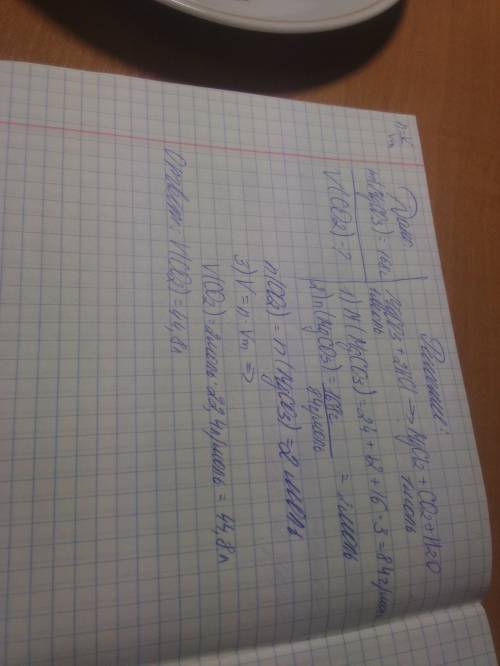 n=V/Vm
Дано
m(MgCO3) =
V(CO2) - ?
Решение:
MgCO3 + 2HCl → MgCl2 + CO2 + H2O
1моль 1моль
1) M(MgCO3) = 24 + 12 + 16 · 3 = 84г/моль
2) n(MgCO3) = / 84г/моль = 2моль
n(CO2) = n(MgCO3) = 2 моль
3) V = n · Vm ⇒
V(CO2) = 2моль · 22,4л/моль = 44,8л
Ответ: V(CO2) = 44,8л